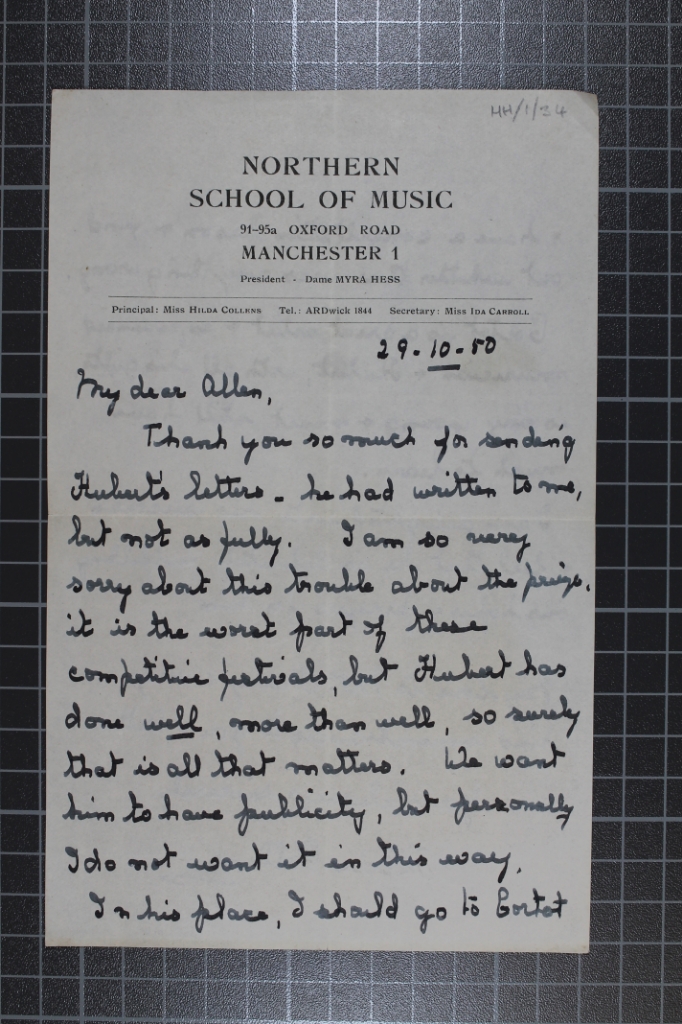 HH/1/34
NORTHERN
SCHOOL OF MUSIC
91-95a OXFORD ROAD
MANCHESTER 1
President - Dame MYRA HESS
Principal: Miss HILDA COLLENS Tel.: ARDwick 1844 Secretary: Miss IDA CARROLL
29-10-50
My dear Allen,
Thank you so much for sending
Hubert's letters - he had written to me,
but not as fully. I am so very
sorry about this trouble about the prize,
it is the worst part of these
competitive festivals, but Hubert has
done well, more than well, so surely
that is all that matters. We want
him to have publicity, but personally
I do not want it in this way.
In his place, I should go to Cortot